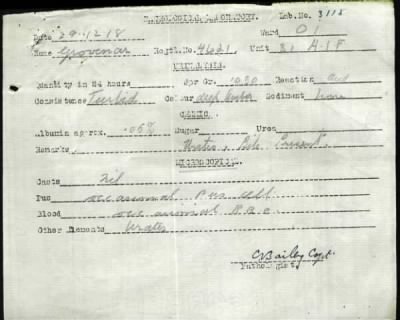 Lab.No. 3118
Date 29-12-18 Ward 01
Name Grovenor Regtl.No. 4621 Unit 31 AIF
URINALYSIS
Quantity in 24 hours Spr Gr. 1020 Reaction Acid
Consistence Turbid Colour deep amber Sediment
CHEMIC
Albumin approx. .05% Sugar Urea
Remarks Urates & Bile Present.
MICROSCOPICAL
Casts Nil
Pus occasional Pus cell
Blood occasional R.B.C.
Other Elements Urates
C Bailey Capt.
Pathologist